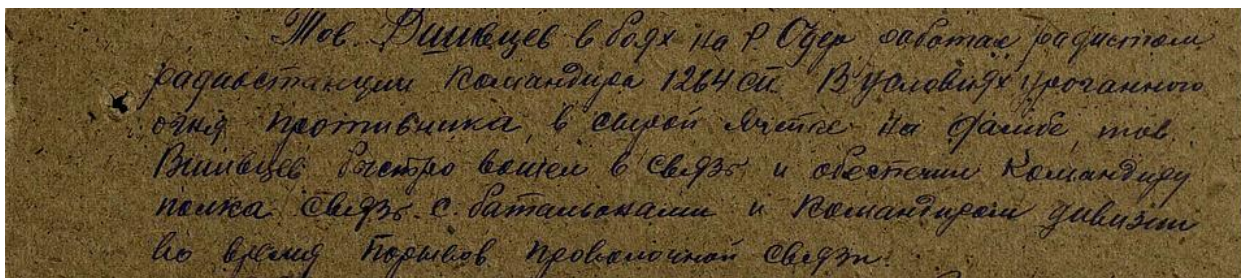 Тов. Вишивцев в боях на р. Одер работая радистом
радиостанции командира 1264 сп. В условиях ураганного
огня противника, в сырой на дамбе, тов.
Вишивцев быстро вошел в связь и обеспечил командиру
полка связь с батальонами и командиром дивизии
во время порывов проволочной связи.